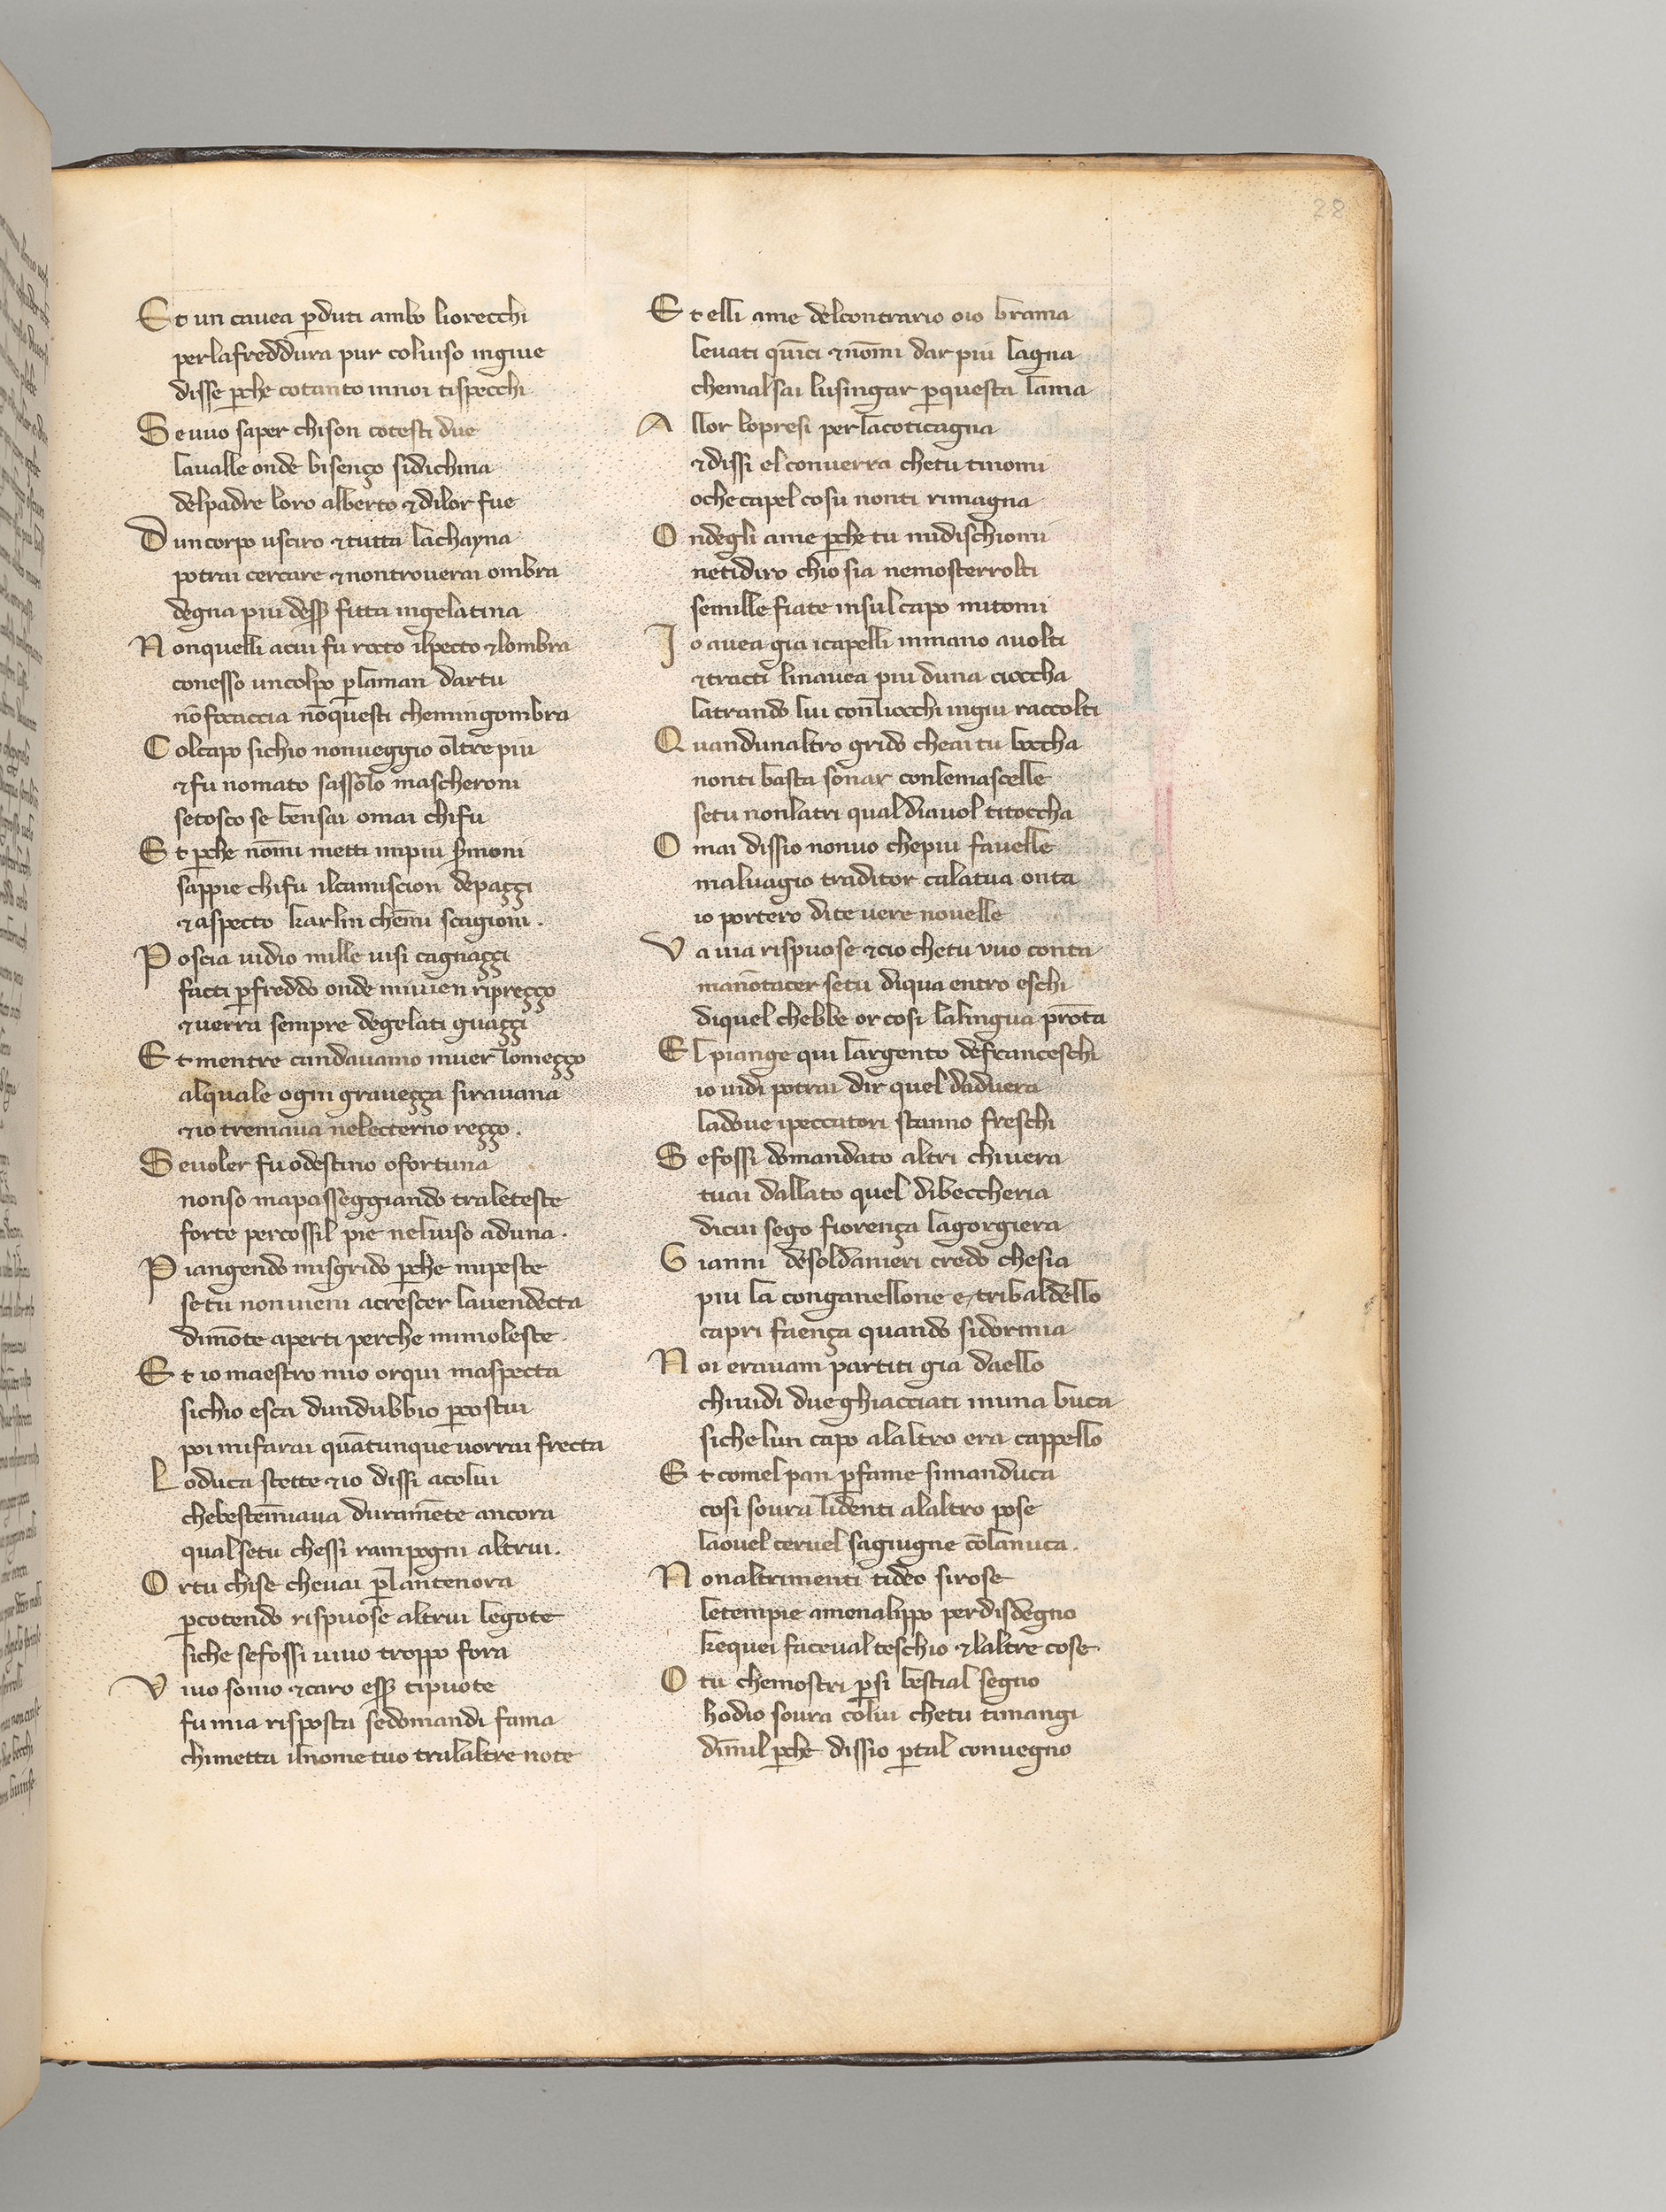 28
Et un cavea ꝑduti ambo liorecchi
perlafreddura pur colviso ingiue
disse ꝑche cotanto innoi tispecchi
Se vuo saper chison cotesti due
lavalle onde bisenço sidichina
delpadre loro alberto ⁊dilor fue
Duncorpo usciro ⁊tutta lachayna
potrai cercare ⁊nontroverai ombra
degna piu desſꝫ fitta ingelatina
Nonquelli acui fu rocto ilpecto ⁊lombra
conesso uncolpo ꝑlaman dartu
nō focaccia nōquesti chemingombra
Colcapo sichio nonveggio oltre piu
⁊fu nomato sassolo mascheroni
setosco se bensai omai chifu
Et ꝑche nōmi metti inpiu s̄moni
sappie chifu ilcamiscion depaççi
⁊aspecto karlin chēmi scagioni.
Poscia vidio mille visi cagnaççi
facti ꝑfreddo onde mivien ripreçço
⁊verra sempre degelati guaççi
Et mentre candavamo inver lomeçço
alquale ogni graveçça siravana
⁊io tremava neleccterno reçço.
Sevoler fu odestino ofortuna
nonso mapasseggiando traleteste
forte percossil pie nelviso aduna.
Piangendo misgrido ꝑche mipeste
setu nonvieni acrescer lavendecta
dimōte aperti perche mimoleste.
Et io maestro mio orqui maspecta
sichio esca dundubbio ꝑcostui
poi mifarai quātunque vorrai frecta
Loduca stette ⁊io dissi acolui
chebestēmiava duramēte ancora
qualsetu chessi rampogni altrui.
Ortu chise chevai ꝑlantenora
ꝑcotendo rispuose altrui legote
siche sefossi vivo troppo fora
Vivo sonio ⁊caro esſꝫ tipuote
fu mia risposta sedomandi fama
chimetta ilnome tuo tralaltre note
Et elli ame delcontrario oio brama
levati quīci ⁊nōmi dar piu lagna
chemalsai lusingar ꝑquesta lama
Allor lopresi perlacoticagna
⁊dissi el converra chetu tinomi
oche capel cosu nonti rimagna
Ondegli ame ꝑche tu midischiomi
netidiro chio sia nemosterrolti
semille fiate insulcapo mitomi
Io avea gia icapelli inmano avolti
⁊tracti linavea piu duna ciocchа
latrando lui conliocchi ingiu raccolti
Quandunaltro grido cheaitu boccha
nonti basta sonar conlemascelle
setu nonlatri qual diavol titoccha
Omai dissio nonvo chepiu favelle
malvagio traditor calatua onta
io portero dite vere novelle
Va via rispuose ⁊cio chetu vuo conta
manōtacer setu diqua entro eschi
diquel chebbe or cosi lalingua prōta
El piange qui largento defranceschi
io vidi potrai dir quel daduera
ladove ipeccatori stanno freschi
Sefossi domandato altri chivera
tuai dallato quel dibeccheria
dicui sego fiorença lagorgiera
Gianni desoldanieri credo chesia
piu la conganellone e tribaldello
capri faença quando sidormia
Noi eravam partiti gia daello
chividi due ghiacciati inuna buca
sichelun capo alaltro era cappello
Et comel pan ꝑfame simanduca
cosi sovra lidenti alaltro pose
laovel cervel sagiugne cōlanuca.
Nonaltrimenti tideo sirose
letempie amenalippo perdisdegno
kequei facevalteschio ⁊laltre cose
O tu chemostri ꝑsi bestial segno
hodio sovra colui chetu timangi
dimmil ꝑche dissio ꝑtal convegno